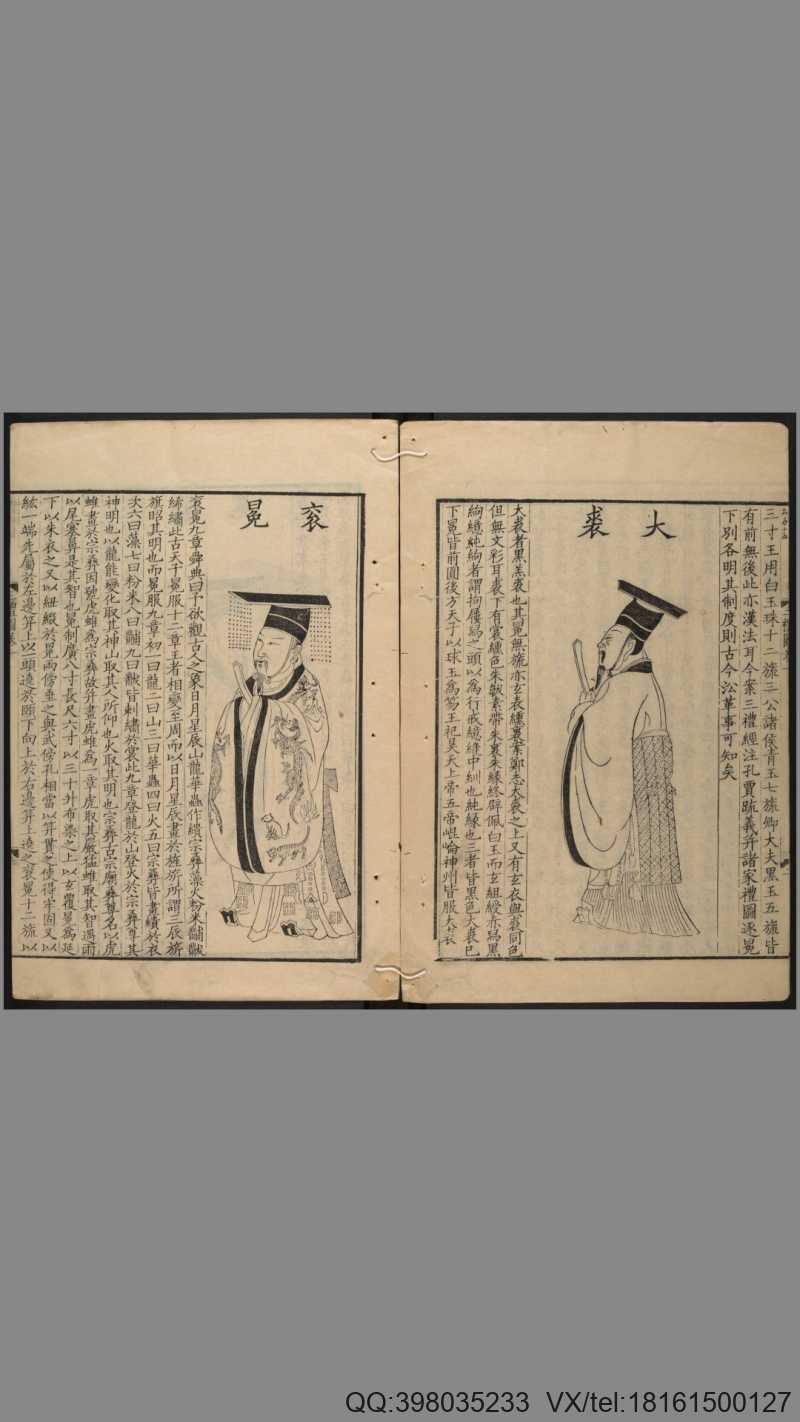 三寸王用白玉珠十二旒三公諸侯青玉七旒卿大夫黑玉五旒皆
有前無後此亦漢法耳今案三禮經注孔賈疏義并諸家禮圖逐冕
下別各明其制度則古今沿革事可知矣
大裘
大裘者黑羔裘也其冕無旒亦玄表纁裏案鄭志大裘之上又有玄衣與裘同色
但無文彩耳裘下有裳纁色朱韍素帶朱裏朱綠終辟佩白玉而玄組綬赤舄黑
絇繶純絇者謂拘屨舄之頭以為行戒繶縫中紃也純緣也三者皆黑色大裘已
下冕皆前圓後方天子以球玉為笏王祀昊天上帝五帝崐崘神州皆服大裘
袞冕
袞冕九章舜典曰予欲觀古人之象日月星辰山龍華蟲作繢宗彝藻火粉米黼黻
絺繡此古天子冕服十二章王者相變至周而以日月星辰畫於旌旂所謂三辰旂
旗昭其明也而冕服九章初一曰龍二曰山三曰華蟲四曰火五曰宗彝皆畫繢於衣
次六曰藻七曰粉米八曰黼九曰黻皆刺繡於裳此九章登龍於山登火於宗彝尊其
神明也以龍能變化取其神山取其人所仰也火取其明也宗彝古宗廟彝尊名以虎
蜼畫於宗彝因號虎蜼為宗彝故并畫虎蜼為一章虎取其嚴猛蜼取其智遇雨
以尾塞鼻是其智也冕制廣八寸長尺六寸以三十升布染之上以玄覆冕為延
下以朱衣之又以紐綴於冕兩傍垂之與武傍孔相當以笄貫之使得牢固又以
紘一端先屬於左邊笄上以一頭遶於頤下向上於右邊笄上遶之袞冕十二旒以
QQ:398035233 VX/tel:18161500127